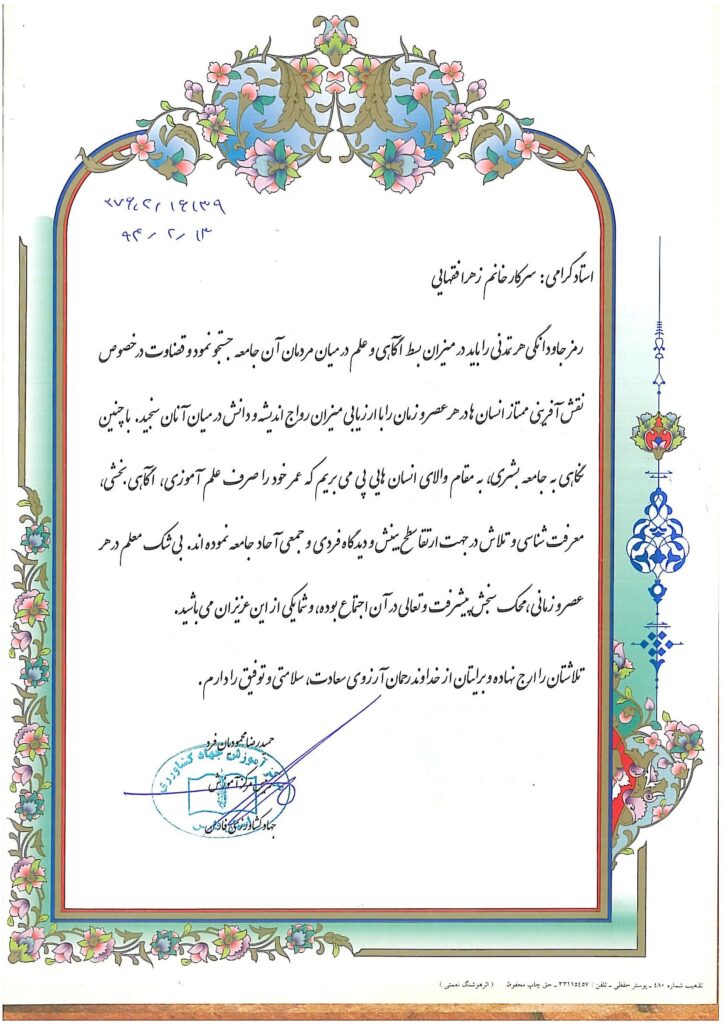 ۳۷۶/۲/۱۶۱۳۹
۹۴/۲/۱۳
استاد گرامی: سرکار خانم زهرا فقهایی
رمز جاودانگی هر تمدنی را باید در میزان بسط آگاهی و علم در میان مردمان آن جامعه جستجو نمود و قضاوت در خصوص
نقش آفرینی ممتاز انسان ها در هر عصر و زمان را با ارزیابی میزان رواج اندیشه و دانش در میان آنان سنجید. با چنین
نگاهی به جامعه بشری، به مقام والای انسان هایی پی می بریم که عمر خود را صرف علم آموزی، آگاهی بخشی،
معرفت شناسی و تلاش در جهت ارتقا سطح بینش و دیدگاه فردی و جمعی آحاد جامعه نموده اند. بی شک معلم در هر
عصر و زمانی، محک سنجش پیشرفت و تعالی در آن اجتماع بوده، و شما یکی از این عزیزان می باشید.
تلاشتان را ارج نهاده و برایتان از خداوند رحمان آرزوی سعادت، سلامتی و توفیق را دارم.
حمیدرضا محمودیان فرد
آموزش جهاد کشاورزی
رئیس مرکز آموزش
جهاد کشاورزی فارس
تذهیب شماره ۴۸۰ ـ پوستر حفظی ـ تلفن : ۳۳۱۱۵۴۵۷ ـ حق چاپ محفوظ ( اثر هوشنگ نعمتی )